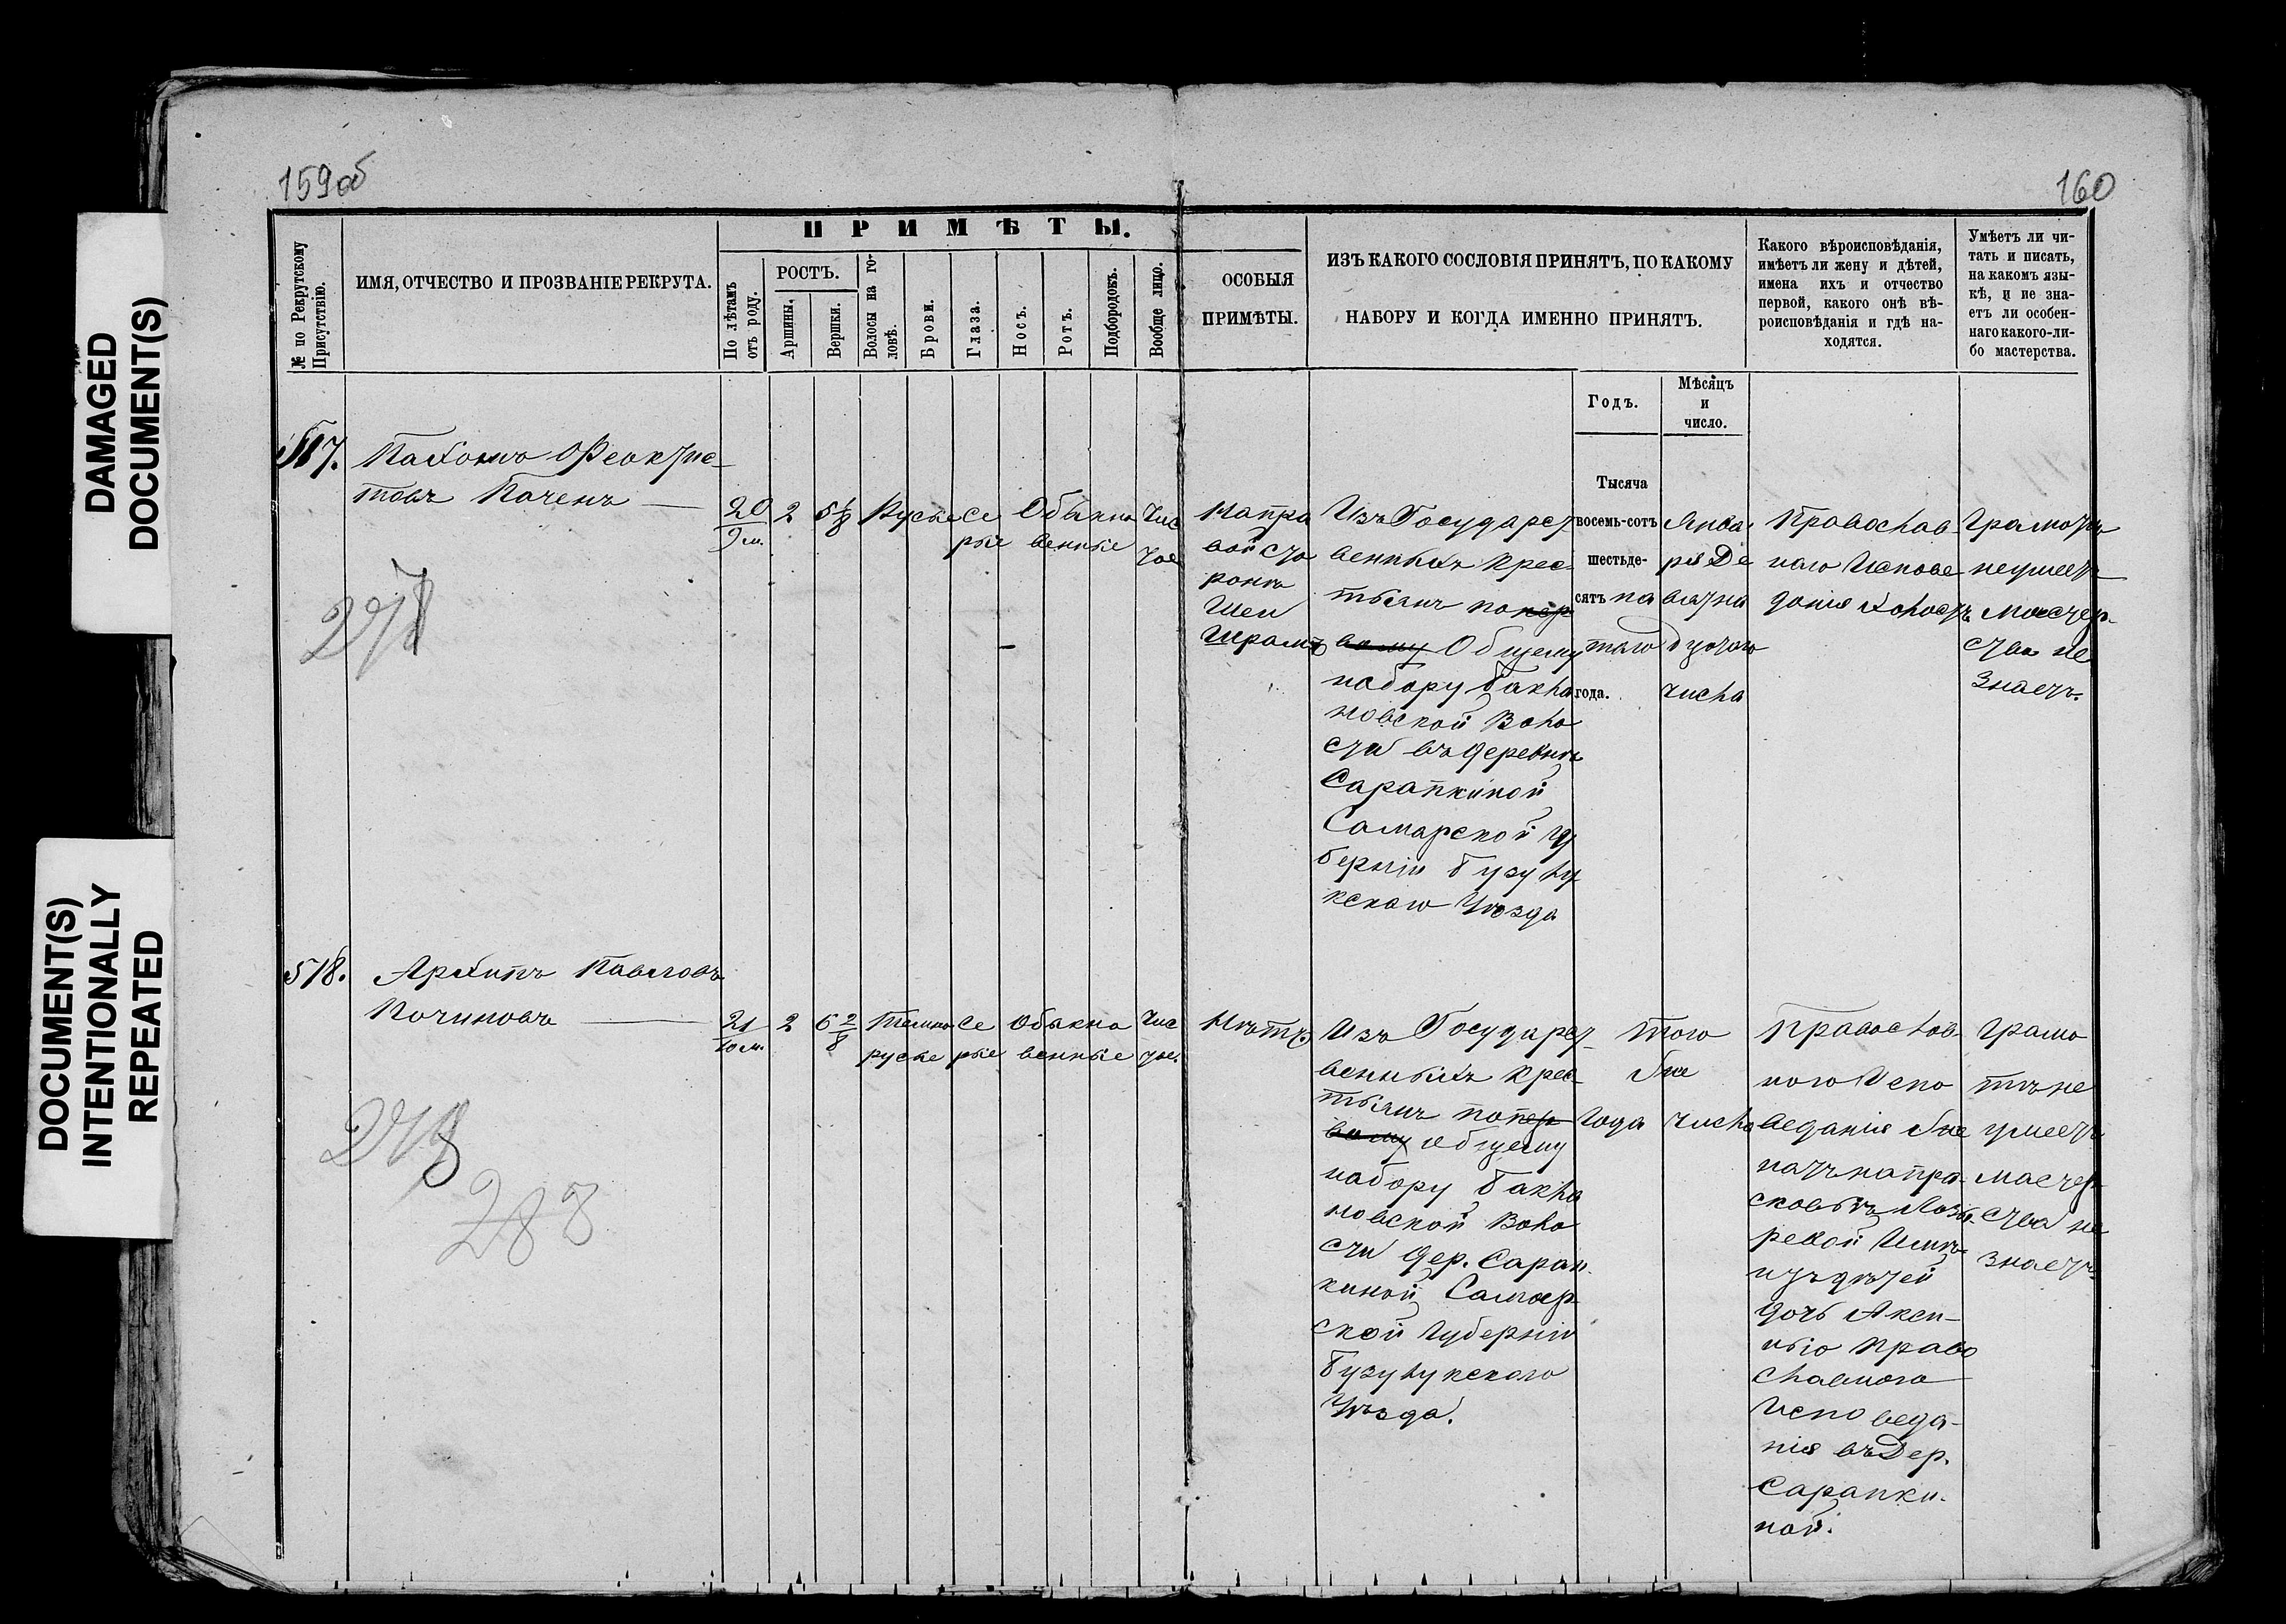 159об
160
DAMAGED
DOCUMENT(S)
DOCUMENT(S)
INTENTIONALLY
REPEATED
№ по Рекрутскому
Присутствію.
ИМЯ, ОТЧЕСТВО И ПРОЗВАНІЕ РЕКРУТА.
ПРИМѢТЫ.
По лѣтамъ
отъ роду.
РОСТЪ.
Аршины.
Вершки.
Волосы на го-
ловѣ.
Брови.
Глаза.
Носъ.
Ротъ.
Подбородокъ.
Вообще лицо.
ОСОБЫЯ
ПРИМѢТЫ.
ИЗЪ КАКОГО СОСЛОВІЯ ПРИНЯТЪ, ПО КАКОМУ
НАБОРУ И КОГДА ИМЕННО ПРИНЯТЪ.
Годъ.
Мѣсяцъ
и
число.
Какого вѣроисповѣданія,
имѣетъ ли жену и дѣтей,
имена ихъ и отчество
первой, какого онѣ вѣ-
роисповѣданія и гдѣ на-
ходятся.
Умѣетъ ли чи-
тать и писать,
на какомъ язы-
кѣ, и не зна-
етъ ли особен-
наго какого-ли-
бо мастерства.
517.
Пахомъ Феоктис-
товъ Поченъ
20
9 м.
2
Русые
Се
рые
Обыкно
венные
Чис
тое
На пра
вой сто
ронѣ
Шеи
Шрамъ
Изъ Государст-
венныхъ крес-
тьянъ по пер
вому Общему
набору Бакла
новской Воло
сти въ деревнѣ
Сарапкиной
Самарской гу
берніи Бузулу
кскаго Уѣзда
Тысяча
восемь-сотъ
шестьде-
сятъ пя
таго
года.
Янва
ря Де
вятна
дцатаго
числа
Православ-
наго Испове
данія холостъ
Грамотѣ
неумеетъ
мастер-
ства не
знаетъ.
518.
Архипъ Павловъ
Починовъ
21
10 м.
2
6 2/8
Темно
русые
Се
рые
Обыкно
венные
Чис
тое.
Нѣтъ
Изъ Государст-
венныхъ крес-
тьянъ по пер
вому общему
набору Бакла
новской Воло
сти дер. Сарап-
киной Самар-
ской Губерніи
Бузулукскаго
Уѣзда.
того
Года
же
числа
Православ-
наго Испо
веданія же
натъ на Пра-
сковьѣ
изъ дѣтей
дочь Акси-
нью Право
славнаго
Испoведа-
нія въ Дер.
Сарапки-
ной.
Грамо
тѣ не
умеетъ
мастер-
ства не
знаетъ
288